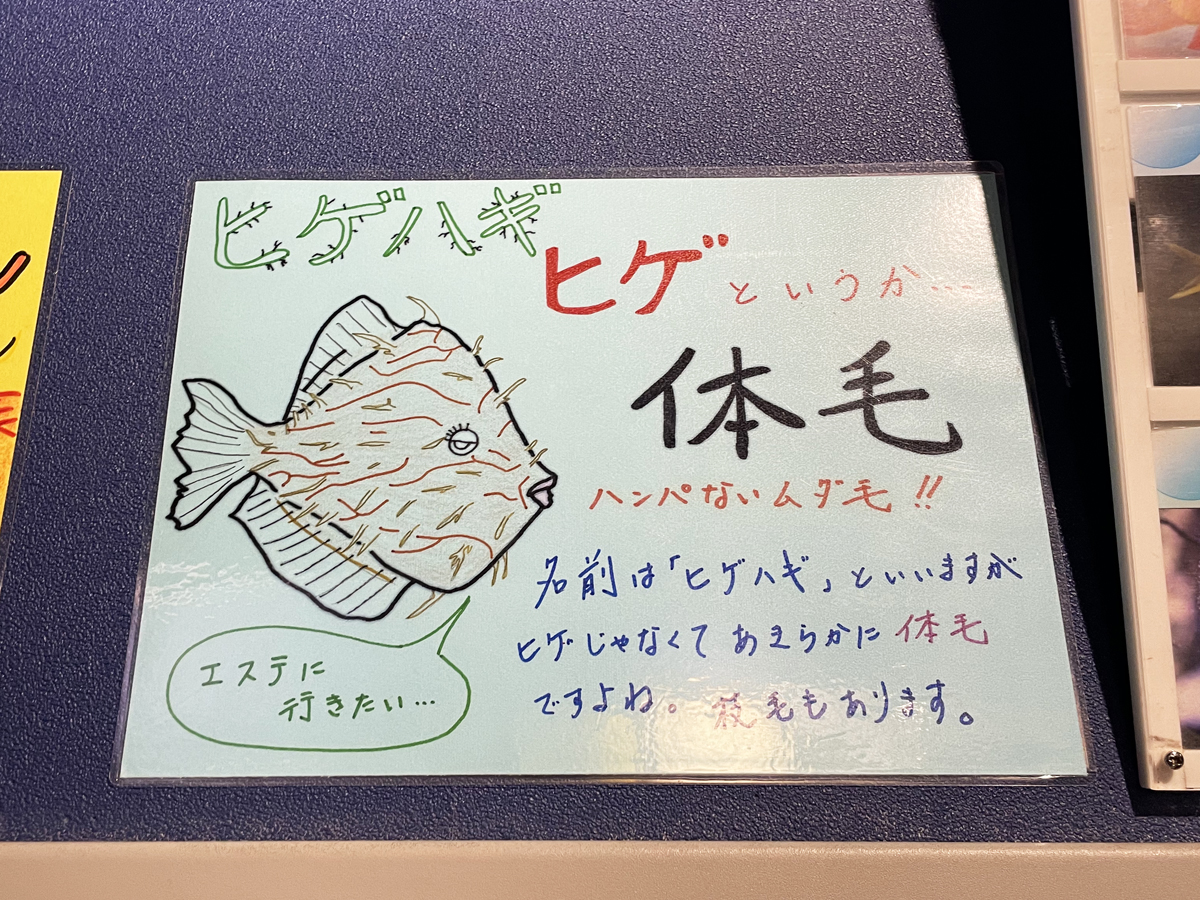 ヒゲハギ
ヒゲというか…
体毛
ハンパないムダ毛!!
名前は「ヒゲハギ」といいますが
ヒゲじゃなくてあきらかに体毛
ですよね。枝毛もあります。
エステに
行きたい…